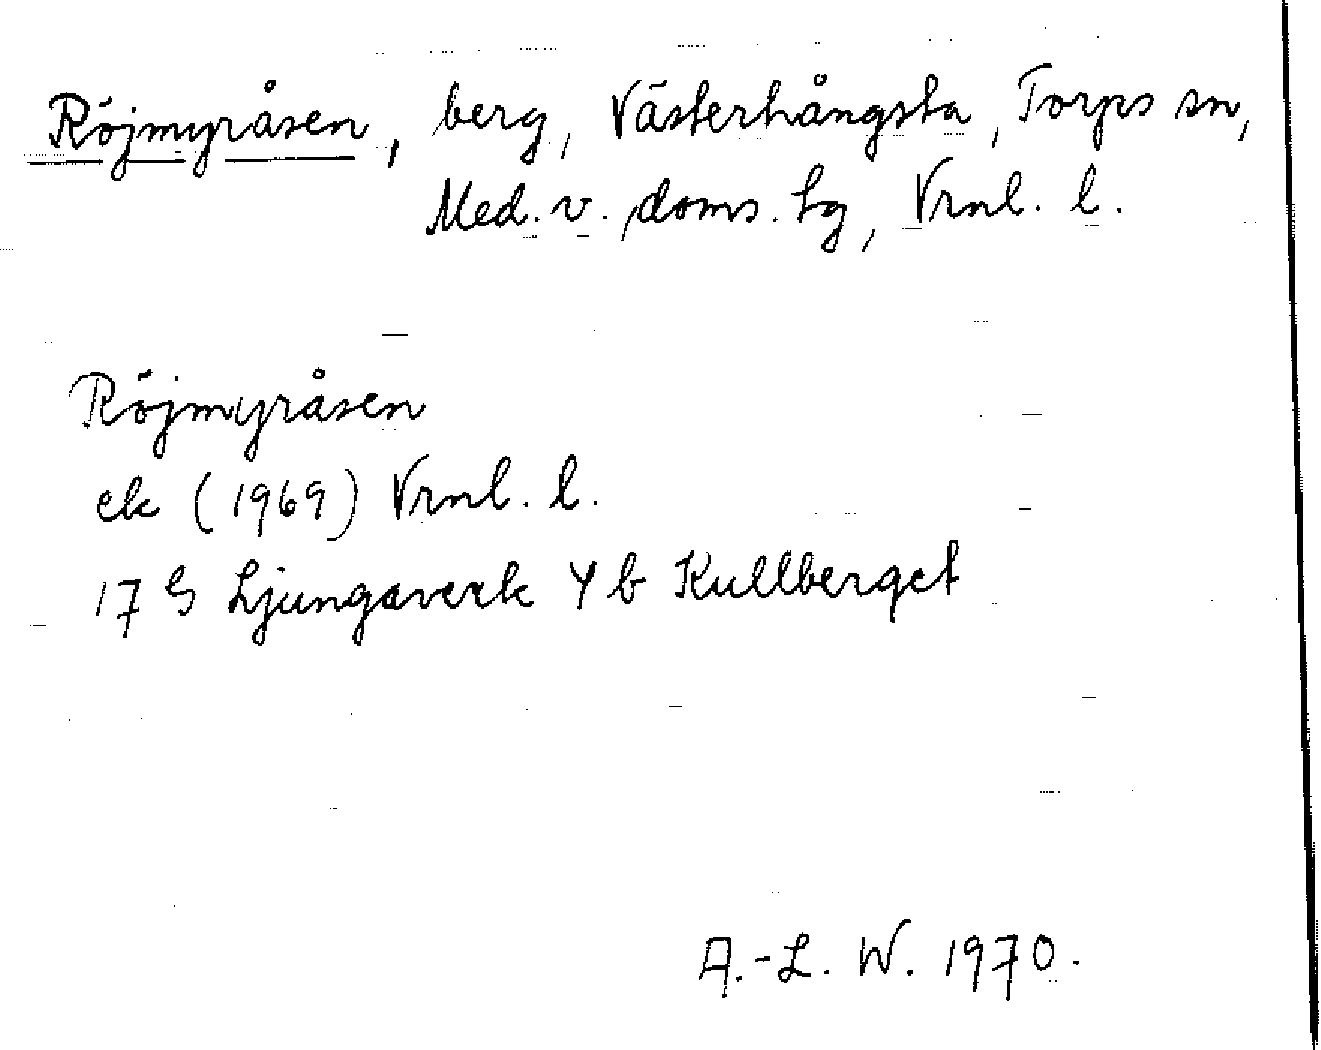 Röjmyråsen, berg, Västerhångsta, Torps sn,
Med. v. doms. tg, Vrnl. l.
Röjmyråsen
ek (1969) Vrnl. l.
17 G Ljungaverk 4 b Kullberget
A.-L. W. 1970.